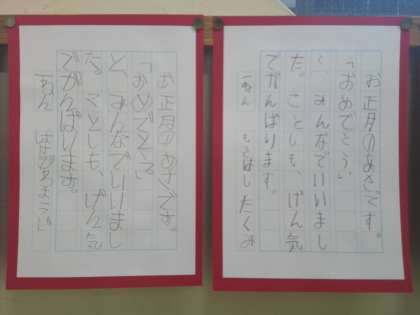 お正月のあさです。
「おめでとう」
と、みんなでいいまし
た。ことしも、げん気
でがんばります。
一ねん たくみ
お正月のあさです。
「おめでとう」
と、みんなでいいまし
た。ことしも、げん気
でがんばります。
一ねん